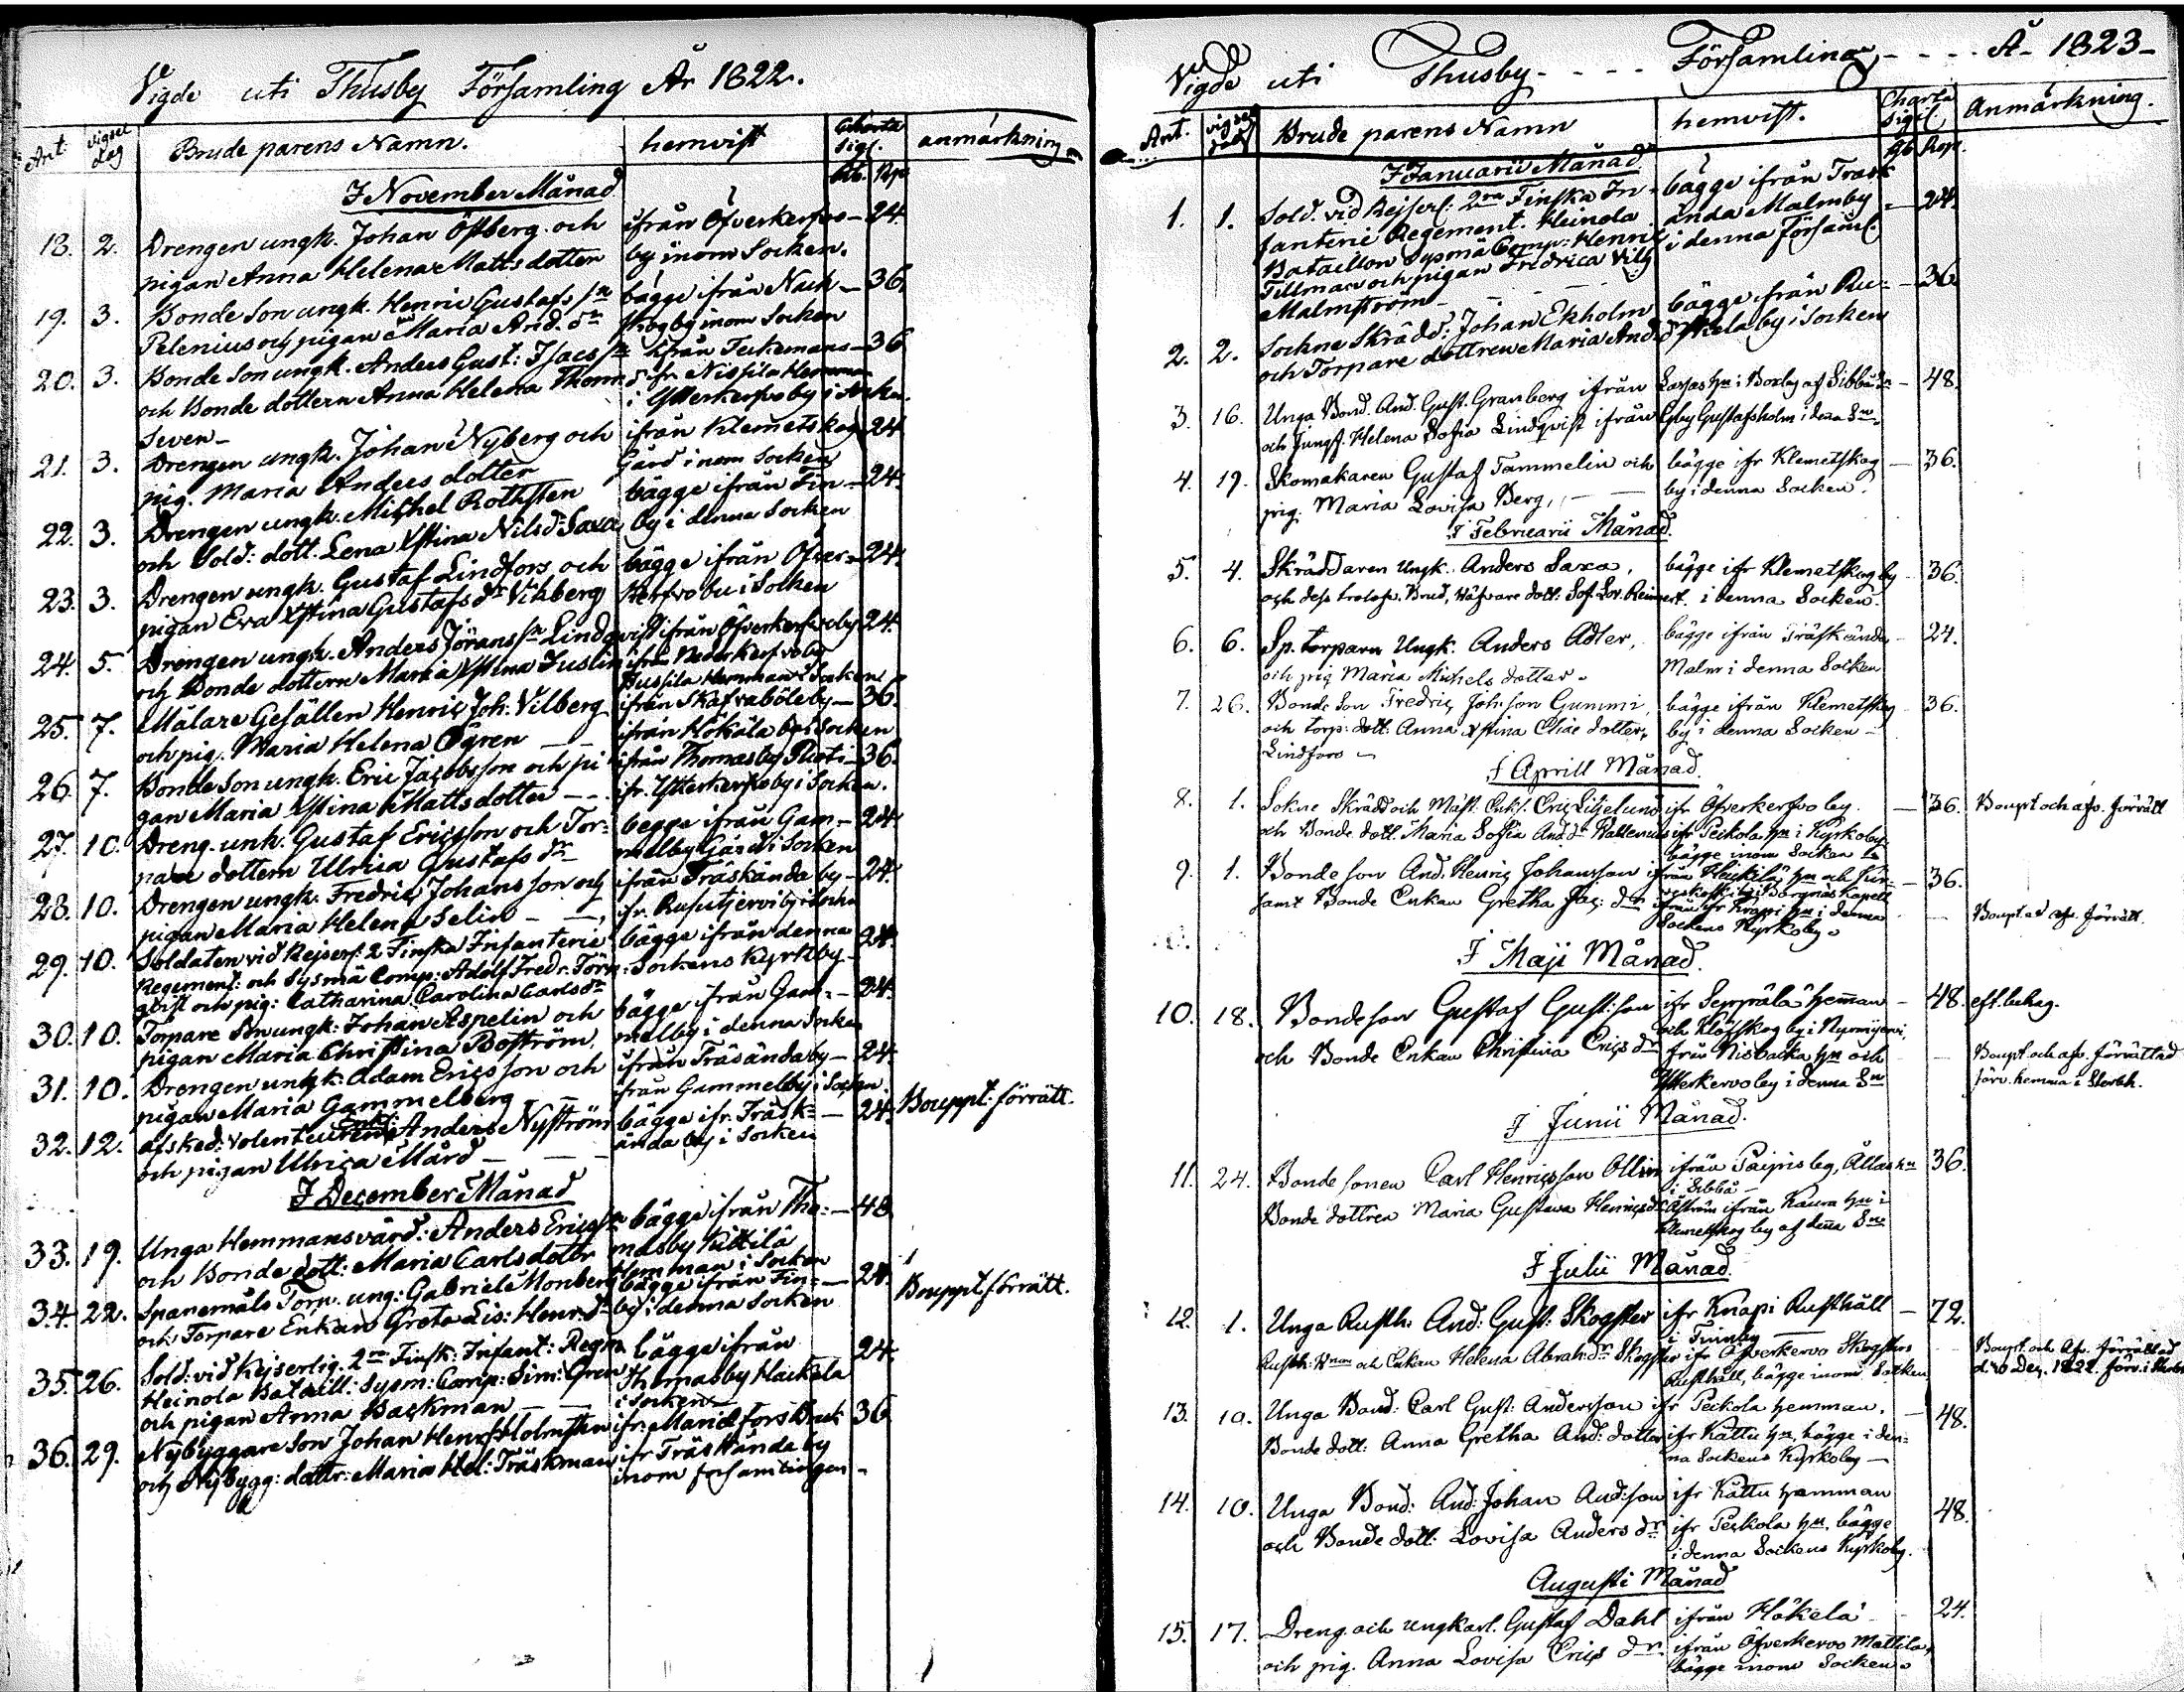 Vigde uti Thusby Församling År 1822.
Ant. Vigsel dag Brude parens Namn. hemvist Charta Sigi. anmärkning
Rb. Kp.
I November Månad
18. 2. Drengen ungk. Johan Östberg och ifrån Öfverkerfvo- 24.
pigan Anna Helena Matts dotter by inom Socken.
19. 3. Bonde Son ungk. Henric Gustafs sn bägge ifrån Nack- 36.
Pelenius och pigan Maria And. dr skog by inom Socken
20. 3. Bonde Son ungk. Anders Gust: Isacs sn ifrån Teckemans- 36
och Bonde dottern Anna Helena Thom ifr. Nissila Hemman
Seven- i Ytterkerfvo by i Socken.
21. 3. Drengen ungk. Johan Nyberg och ifrån Klemetskog 24
pig. Maria Anders dotter Gård inom Socken
22. 3. Drengen ungk. Michel Rothsten bägge ifrån Fin- 24.
och Sold: dott. Lena Xstina Nilsd: Saxa by i denna Socken
23. 3. Drengen ungk. Gustaf Lindfors och bägge ifrån Öfver- 24.
pigan Eva Xstina Gustafs dr Vikberg Kerfvo by i Socken
24. 5. Drengen ungk. Anders Jörans sn Lindqvist ifrån Öfverkerfvo by 24.
och Bonde dottern Maria Xstina Juslin ifrån Nederkerfvo by
Jussila Hemman i Socken
25. 7. Målare Gesällen Henric Joh: Vilberg ifrån Skafvaböle by- 36.
och pig. Maria Helena Ögren - - ifrån Hökäla by i Socken
26. 7. Bonde Son ungk. Eric Jacobsson och pi ifrån Thomasby Skoti- 36.
gan Maria Xstina Matts dotter - - ifr. Ytterkerfvo by i Socken.
27. 10. Dreng. unk. Gustaf Ericsson och Tor- begge ifrån Gam- 24.
pare dottern Ulrica Gustafs dr melby Gård i Socken
28. 10. Drengen ungk. Fredric Johansson och ifrån Träskända by- 24.
pigan Maria Helena Selin - - ifr. Rusutjervi by i Socken
29. 10. Soldaten vid Kejserl: 2 Finska Infanterie bägge ifrån denna 24.
Regement: och Sysmä Comp: Adolf Fredr. Törn- Sockens Kyrkby-
qvist och pig: Catharina Carolina Carlsdr
30. 10. Torpare Son ungk: Johan Aspelin och bägge ifrån Gam- 24.
pigan Maria Christina Boström. melby i denna Socken
31. 10. Drengen ungk: Adam Ericsson och ifrån Träsända by- 24.
pigan Maria Gammelberg - från Gammelby i Socken.
32. 12. afsked: volenteuren Enkl. Anders Nyström bägge ifr. Träsk- 24. Bouppt: förrätt.
och pigan Ulrica Mård - - - ända by i Socken
I December Månad
33. 19. Unga Hemmansvärd: Anders Erics sn bägge ifrån Tho- 48.
och Bonde dott: Maria Carlsdottr masby Kittilä
Hemman i Socken
34. 22. Spanemåls Torp. ung: Gabriel Monberg bägge ifrån Fin- 24. Bouppt. förrätt.
och Torpare Enkan Greta Lis: Henr. dr by i denna Socken
35. 26. Sold: vid Kejserlig. 2ra Finsk: Infant: Regm bägge ifrån 24.
Heinola Bataill: Sysm: Comp: Sim: Gren Thomasby Hackala
och pigan Anna Backman i Socken
36. 29. Nybyggare Son Johan Henr: Holmsten ifr. Mariefors Bruk 36
och Nybygg: dottr: Maria Hel: Träskman ifr Träskände by
inom församlingen
Vigde uti Thusby- - - - Församling- - - - - År 1823-
Ant. vigsel dag Brude parens Namn hemvist. Charta Sigil. Anmärkning.
Rb. Kop.
I Januarii Månad
1. 1. Sold. vid Kejserl: 2ra Finska In- bägge ifrån Träsk - 24.
fanterie Regement. Heinola ända Malmby
Bataillon Sysmä Comp: Henric i denna församl.
Tillman och pigan Fredrica Vilh
Malmström - - -
2. 2. Sockne Skrädd: Johan Ekholm bägge ifrån Ru- - 36.
och Torpare dottren Maria And. dr skela by i Socken
3. 16. Unga Bond. And. Gust. Granberg ifrån Saxas hn i Boxby af Sibbo Sn - 48.
och Jungf. Helena Sofia Lindqvist ifrån Egby Gustafsholm i dena Sn.
4. 19. Skomakaren Gustaf Tammelin och bägge ifr Klemetskog - 36.
pig. Maria Lovisa Berg, - - by i denna Socken.
I Februarii Månad.
5. 4. Skräddaren Ungk. Anders Saxa, bägge ifr Klemetskog by - 36.
och dess trolofv. Brud, Häfvare dott: Sof. Lov. Reinert. i denna Socken.
6. 6. Sp. torparn Ungk. Anders Adler, bägge ifrån Träskända - 24.
och pig Maria Michels dotter - Malm i denna Socken
7. 26. Bonde Son Fredric Johsson Gummi, bägge ifrån Klemetskog - 36.
och torp: dott: Anna Xstina Elias dotter, by i denna Socken -
Lindfors -
I Aprill Månad.
8. 1. Sokne Skrädd och Mäst. Enkl. Eric Liljelund ifr Öfverkerfvo by. - 36. Boupt och afv. förrätt
och Bonde dott. Maria Sofia And. dr Wallenius ifr Peckola hn i Kyrkoby.
bägge inom Socken -
9. 1. Bonde son And. Henric Johansson ifrån Heickilä hn och - 36.
samt Bonde Enkan Gretha Jac: dr by i Borgnäs Kapell
ifrån Knapi hn i denna - Boupt. ad afv. förrätt.
Sockens Kyrkoby.
I Maji Månad.
10. 18. Bondeson Gustaf Gust:son ifr Seppälä Heman - 48. eft. behag.
och Klöfskog by i Nurmijervi,
och Bonde Enkan Christina Erics dr från Nisbacka hn och - Boupt och afv. förrättad
Ytterkervo by i denna Sn förv. hemma i Sterbh.
I Junii Månad.
11. 24. Bonde sonen Carl Henricsson Ollin ifrån Paipis by, Allas hn 36.
i Sibbå -
Bonde dottren Maria Gustava Henricsdr Åström ifrån Kaura hn i
Klemetskog by af dena Sn
I Julii Månad.
12. 1. Unga Rusth: And: Gust: Skogster ifr Knapi Rusthåll - 72.
i Tuinby
Rusth: och Enkan Helena Abrah: dr Skogster ifr Öfverkervo Skogsters - Boupt. och Afv. förrättad
Rusthåll, bägge inom Socken d. 10 Dec. 1822. förv. i Sterbh.
13. 10. Unga Bond: Carl Gust: Andersson ifr Peckola hemman. - 48.
Bonde dott: Anna Gretha And: dotter ifr Kattu hn, bägge i den-
na Sockens Kyrkoby -
14. 10. Unga Bond: And: Johan And:son ifr Kattu hemman 48.
och Bonde dott: Lovisa Anders dr ifr Peckola hn, bägge
i denna Sockens Kyrkoby.
Augusti Månad
15. 17. Dreng och ungkarl. Gustaf Dahl ifrån Hökelä 24.
och pig. Anna Lovisa Erics dr. ifrån Öfverkervo Mattila,
bägge inom Socken.